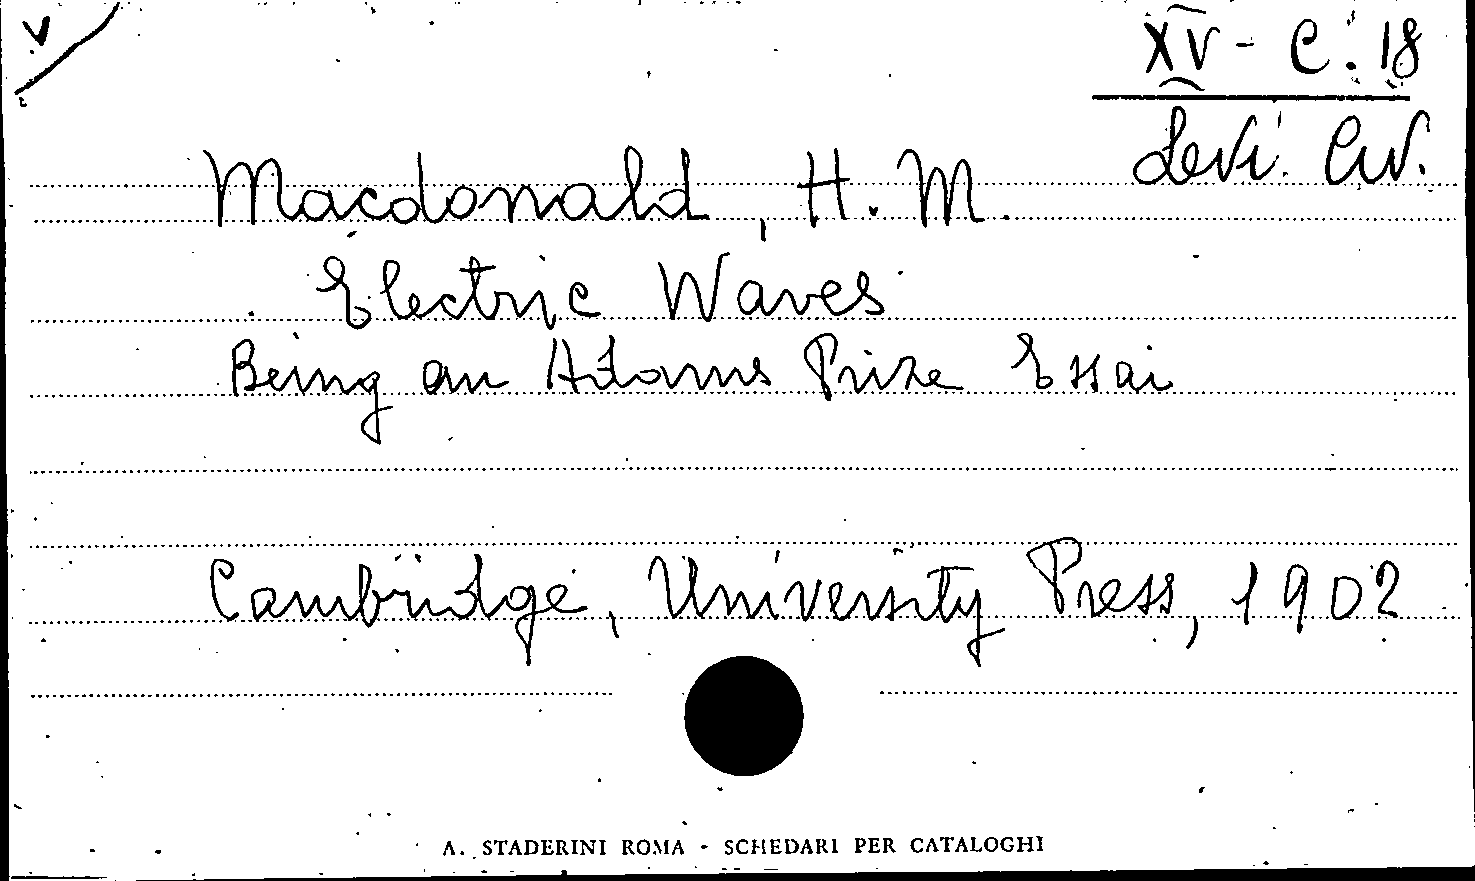 V
XV - C. 18
Levi Civ.
Macdonald, H. M.
Electric Waves
Being an Adams Prize Essai
Cambridge, University Press, 1902
A. STADERINI ROMA - SCHEDARI PER CATALOGHI